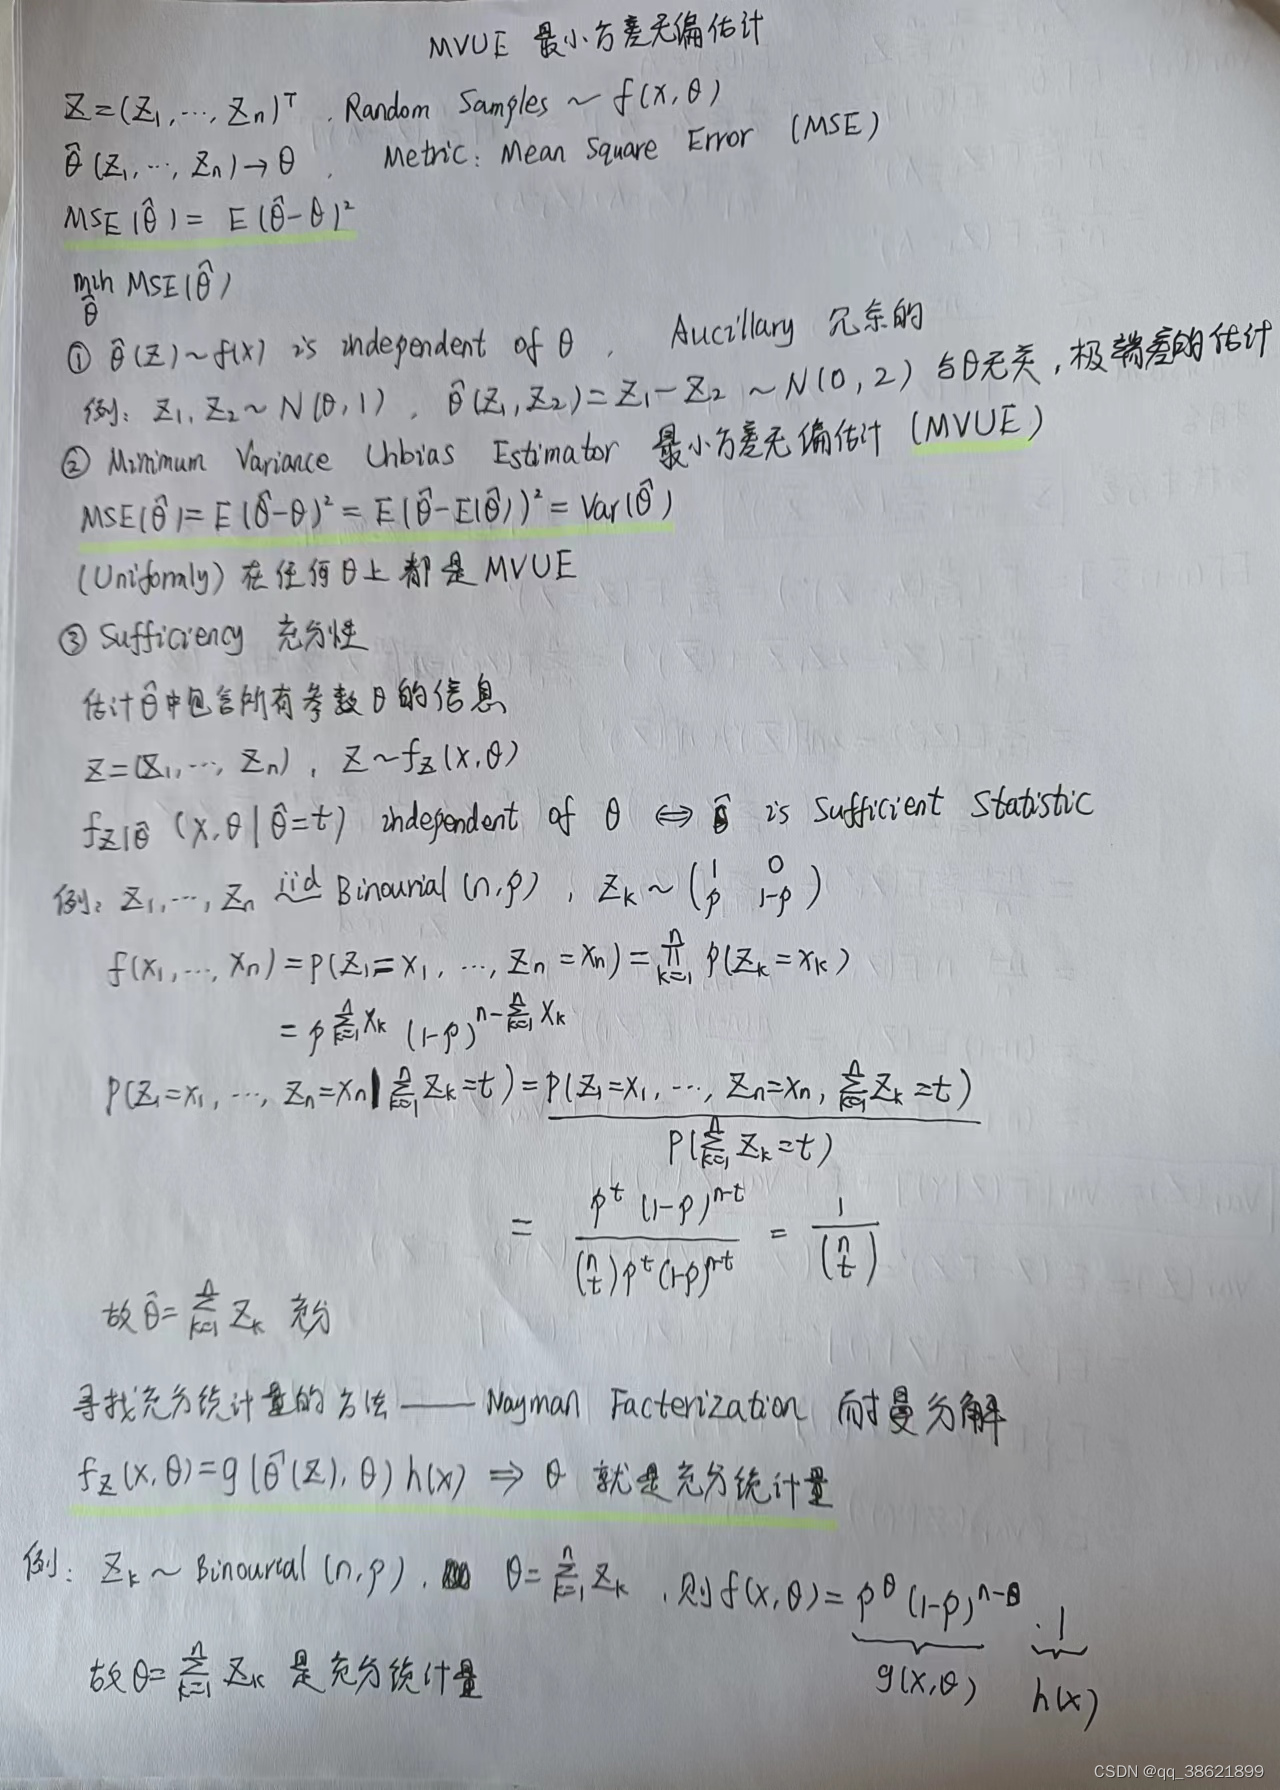 MVUE 最小方差无偏估计
Z=(Z₁,⋯,Zn)ᵀ. Random Samples ~ f(x,θ)
θ̂(Z₁,⋯,Zn)→θ. Metric: Mean Square Error (MSE)
MSE(θ̂)= E(θ̂-θ)²
min MSE(θ̂)
θ̂
① θ̂(Z)~f(x) is independent of θ. Aucillary 冗余的
例: Z₁, Z₂~N(θ,1). θ̂(Z₁,Z₂)=Z₁-Z₂ ~N(0,2) 与θ无关,极端差的估计
② Minimum Variance Unbias Estimator 最小方差无偏估计 (MVUE)
MSE(θ̂)=E(θ̂-θ)²=E(θ̂-E(θ̂))²=Var(θ̂)
(Unifomly) 在任何θ上都是MVUE
③ Sufficiency 充分性
估计θ̂中包含所有参数θ的信息
Z=(Z₁,⋯,Zn), Z~f_Z(x,θ)
f_Z|θ̂ (x,θ|θ̂=t) independent of θ ⇔ θ̂ is Sufficient Statistic
例: Z₁,⋯,Zn iid~ Binourial(n,p), Zk~(1 0
p 1-p)
f(x₁,⋯,xn)=P(Z₁=x₁,⋯,Zn=xn)=∏_{k=1}^{n} P(Zk=xk)
=p^{∑_{k=1}^{n}xk}(1-p)^{n-∑_{k=1}^{n}xk}
P(Z₁=x₁,⋯,Zn=xn|∑_{k=1}^{n}Zk=t)=P(Z₁=x₁,⋯,Zn=xn,∑_{k=1}^{n}Zk=t)
P(∑_{k=1}^{n}Zk=t)
= p^t(1-p)^{n-t} / (n t)p^t(1-p)^{n-t} = 1/(n t)
故θ̂=∑_{k=1}^{n}Zk 充分
寻找充分统计量的方法——Nayman Facterization 耐曼分解
f_Z(x,θ)=g(θ̂(Z),θ)h(x) ⇒ θ 就是充分统计量
例: Zk~Binourial(n,p). θ=∑_{k=1}^{n}Zk,则f(x,θ)=p^θ(1-p)^{n-θ}·1
g(x,θ) h(x)
故θ=∑_{k=1}^{n}Zk 是充分统计量
CSDN @qq_38621899